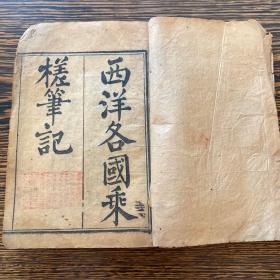 西洋各國乘
槎筆記